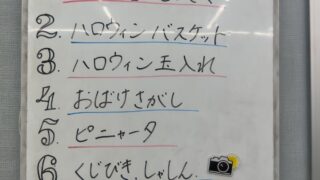 2. ハロウィンバスケット
3. ハロウィン玉入れ
4. おばけさがし
5. ピニャータ
6 くじびき、しゃしん